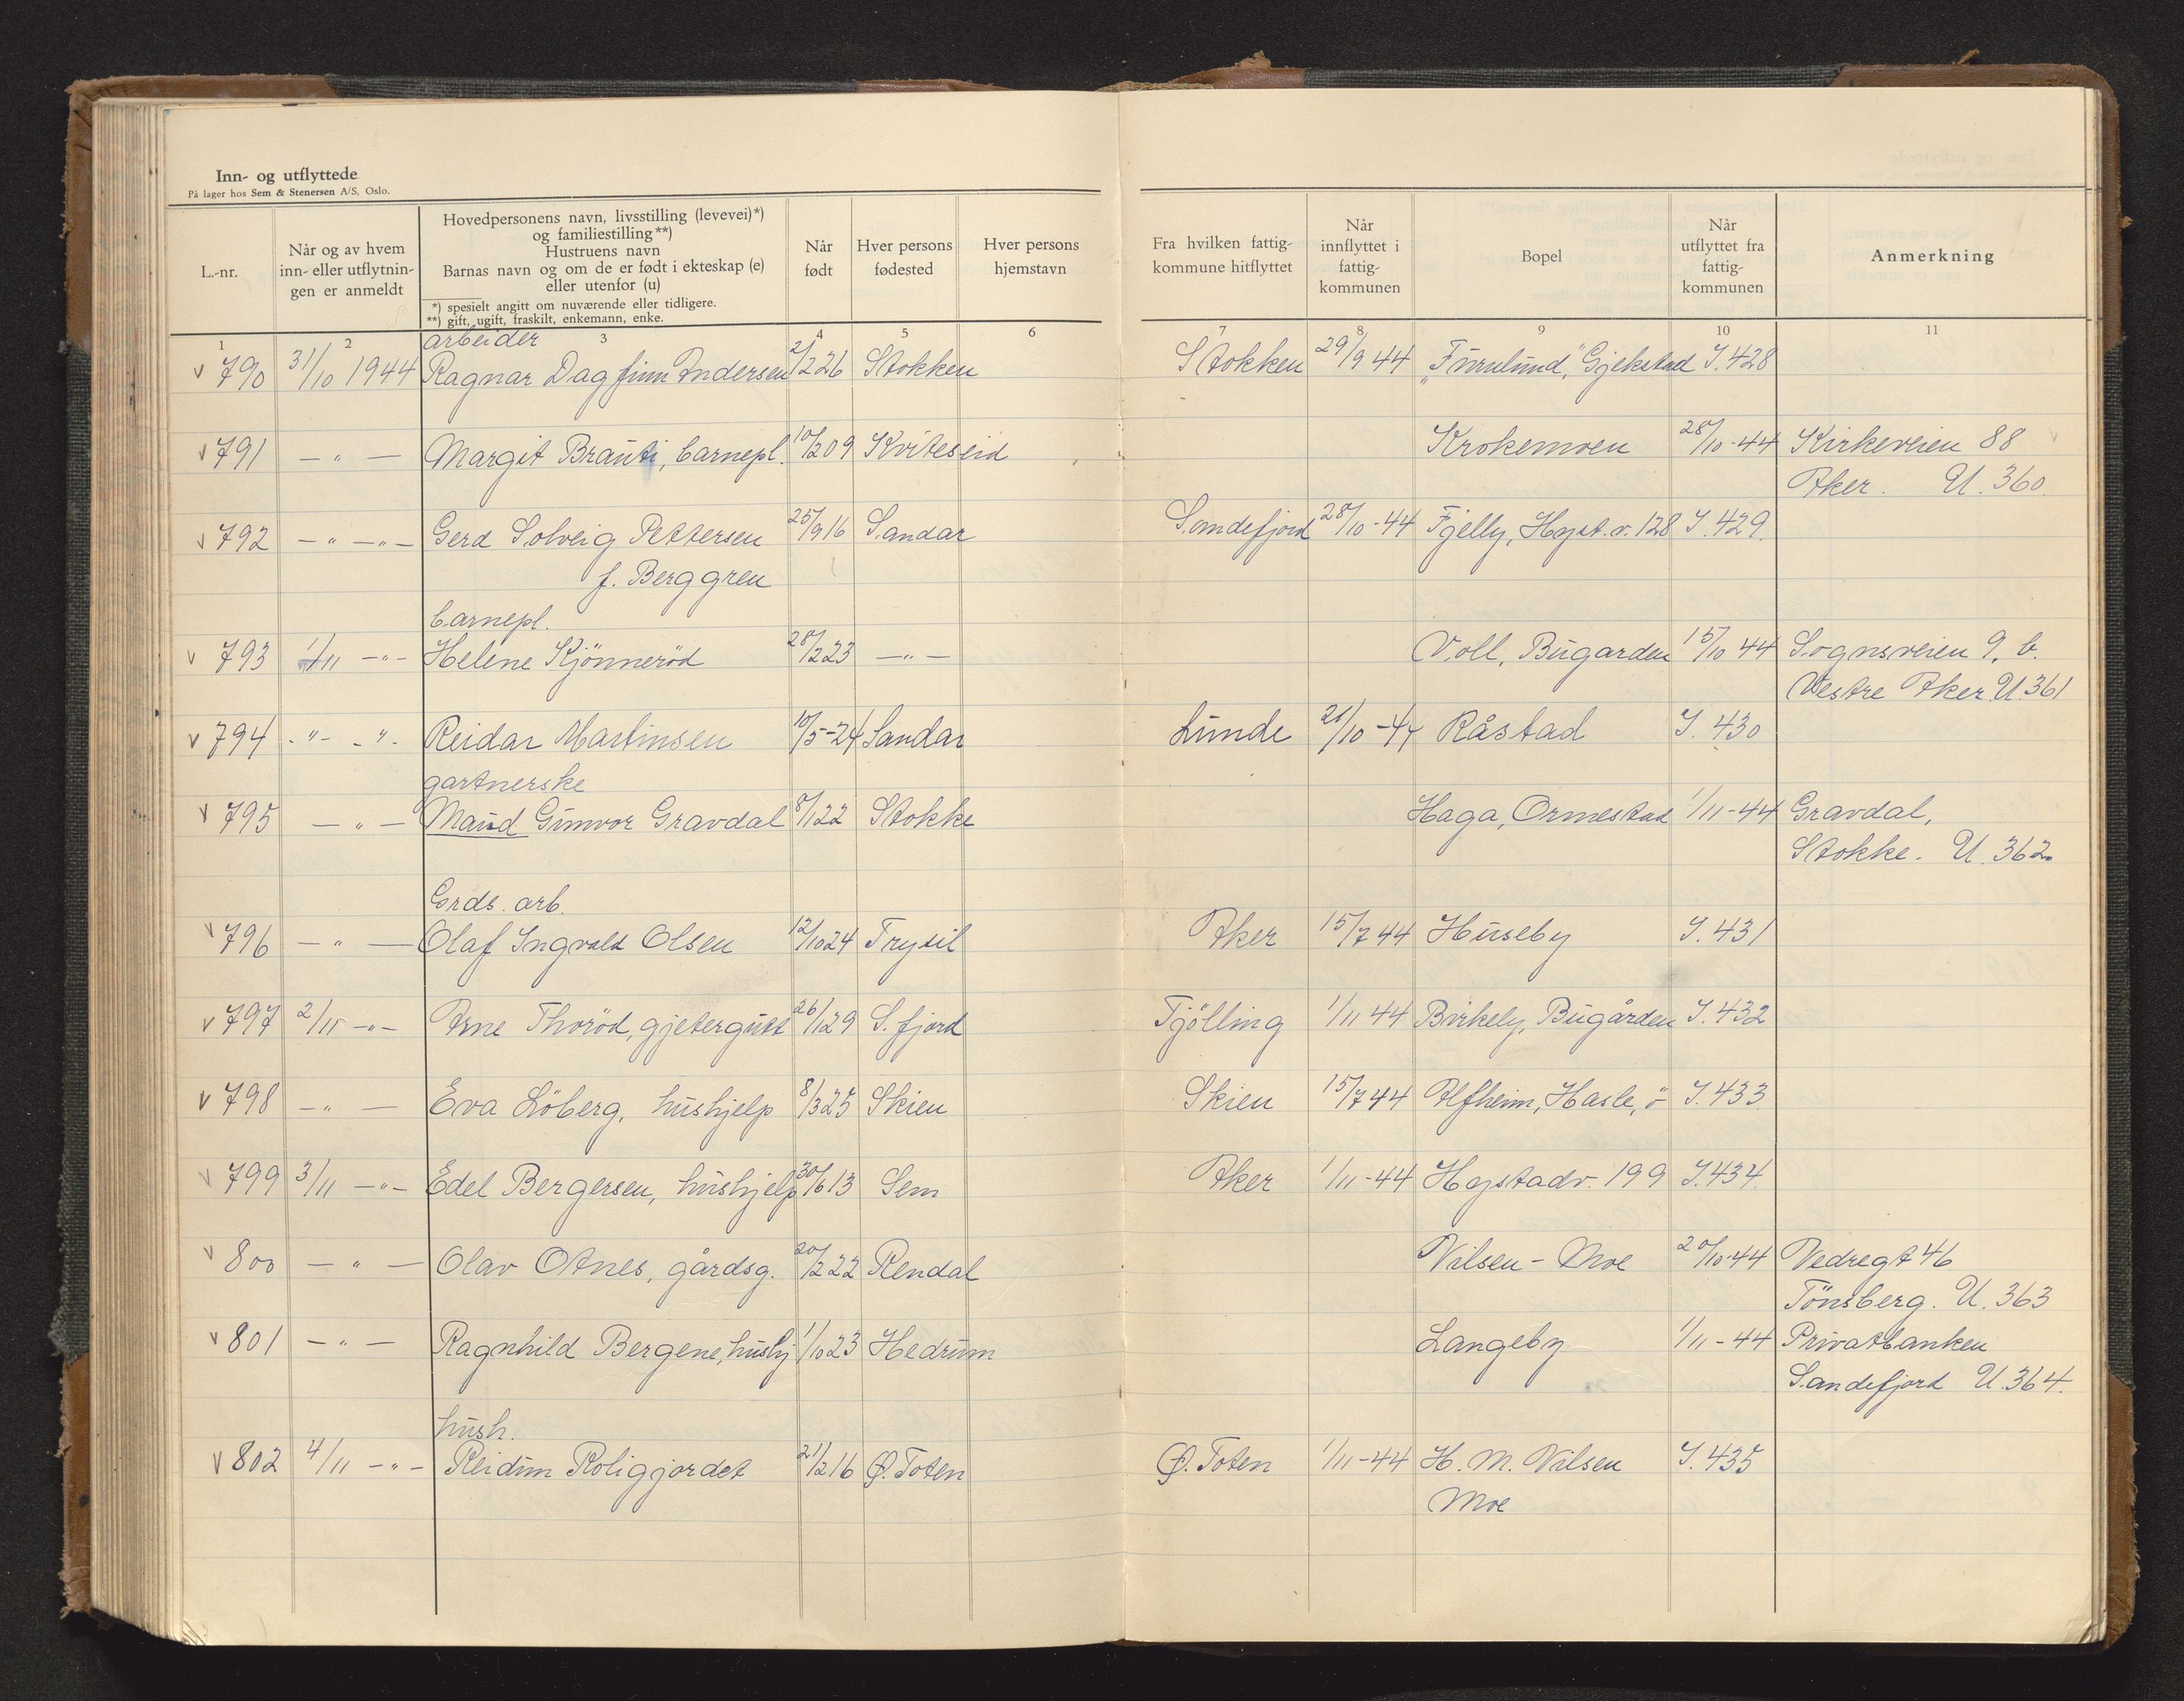 Inn- og utflyttede
På lager hos Sem & Stenersen A/S, Oslo.
L.-nr.
Når og av hvem
inn- eller utflytnin-
gen er anmeldt
Hovedpersonens navn, livsstilling (levevei)*)
og familiestilling**)
Hustruens navn
Barnas navn og om de er født i ekteskap (e)
eller utenfor (u)
*) spesielt angitt om nuværende eller tidligere.
**) gift, ugift, fraskilt, enkemann, enke.
Når
født
Hver persons
fødested
Hver persons
hjemstavn
Fra hvilken fattig-
kommune hitflyttet
Når
innflyttet i
fattig-
kommunen
Bopel
Når
utflyttet fra
fattig-
kommunen
Anmerkning
1 2 3 4 5 6 7 8 9 10 11
arbeider
v 790 31/10 1944 Ragnar Dagfinn Andersen 2/2 26 Stokken Stokken 29/9 44 "Furulund," Gjekstad I. 428
v 791 — " — Margit Brauti, barnepl. 10/2 09 Kviteseid Krokemoen 28/10-44 Kirkeveien 88
Aker. U. 360
v 792 — " — " — Gerd Solveig Pettersen 25/9 16 Sandar Sandefjord 28/10-44 Fjelly, Hyst. v. 128 I. 429.
f. Berggren
barnepl.
v 793 1/11 — " — Helene Kjönneröd 28/2 23 — " — Voll, Bugarden 15/10 44 Sognsveien 9. b.
Vestre Aker U. 361
v 794 - " - - " - Reidar Martinsen 10/5-24 Sandar Lunde 21/10-44 Råstad I. 430
gartnerske
v 795 — " — Maud Gunvor Gravdal 8/1 22 Stokke Haga, Ormestad 1/11-44 Gravdal,
Stokke. U. 362.
Grds. arb.
v 796 — " — Olaf Ingvald Olsen 12/10 24 Trysil Aker 15/7 44 Huseby I. 431
v 797 2/11 — " — Arne Thoröd, gjetergutt 26/1 29 S. fjord Tjölling 1/11 44 Birkely, Bugården I. 432
v 798 — " — Eva Löberg, hushjelp 8/3 25 Skien Skien 15/7 44 Alfheim, Hasle, ö I. 433
v 799 3/11 — " — Edel Bergersen, hushjelp 30/6 13 Sem Aker 1/11-44 Hystadv. 199 I. 434
v 800 — " — Olav Otnes, gårdsg. 20/2 22 Rendal Nilsen - Moe 20/10-44 Nedregt 46
Tönsberg. U. 363
v 801 — " — Ragnhild Bergene, hushj 1/10 23 Hedrum Langeby 1/11-44 Privatbanken
Sandefjord U. 364.
hush.
v 802 4/11 — " — Reidun Roligjordet 21/2 16 Ø. Toten Ø. Toten 1/11-44 H. M. Nilsen I. 435
Moe